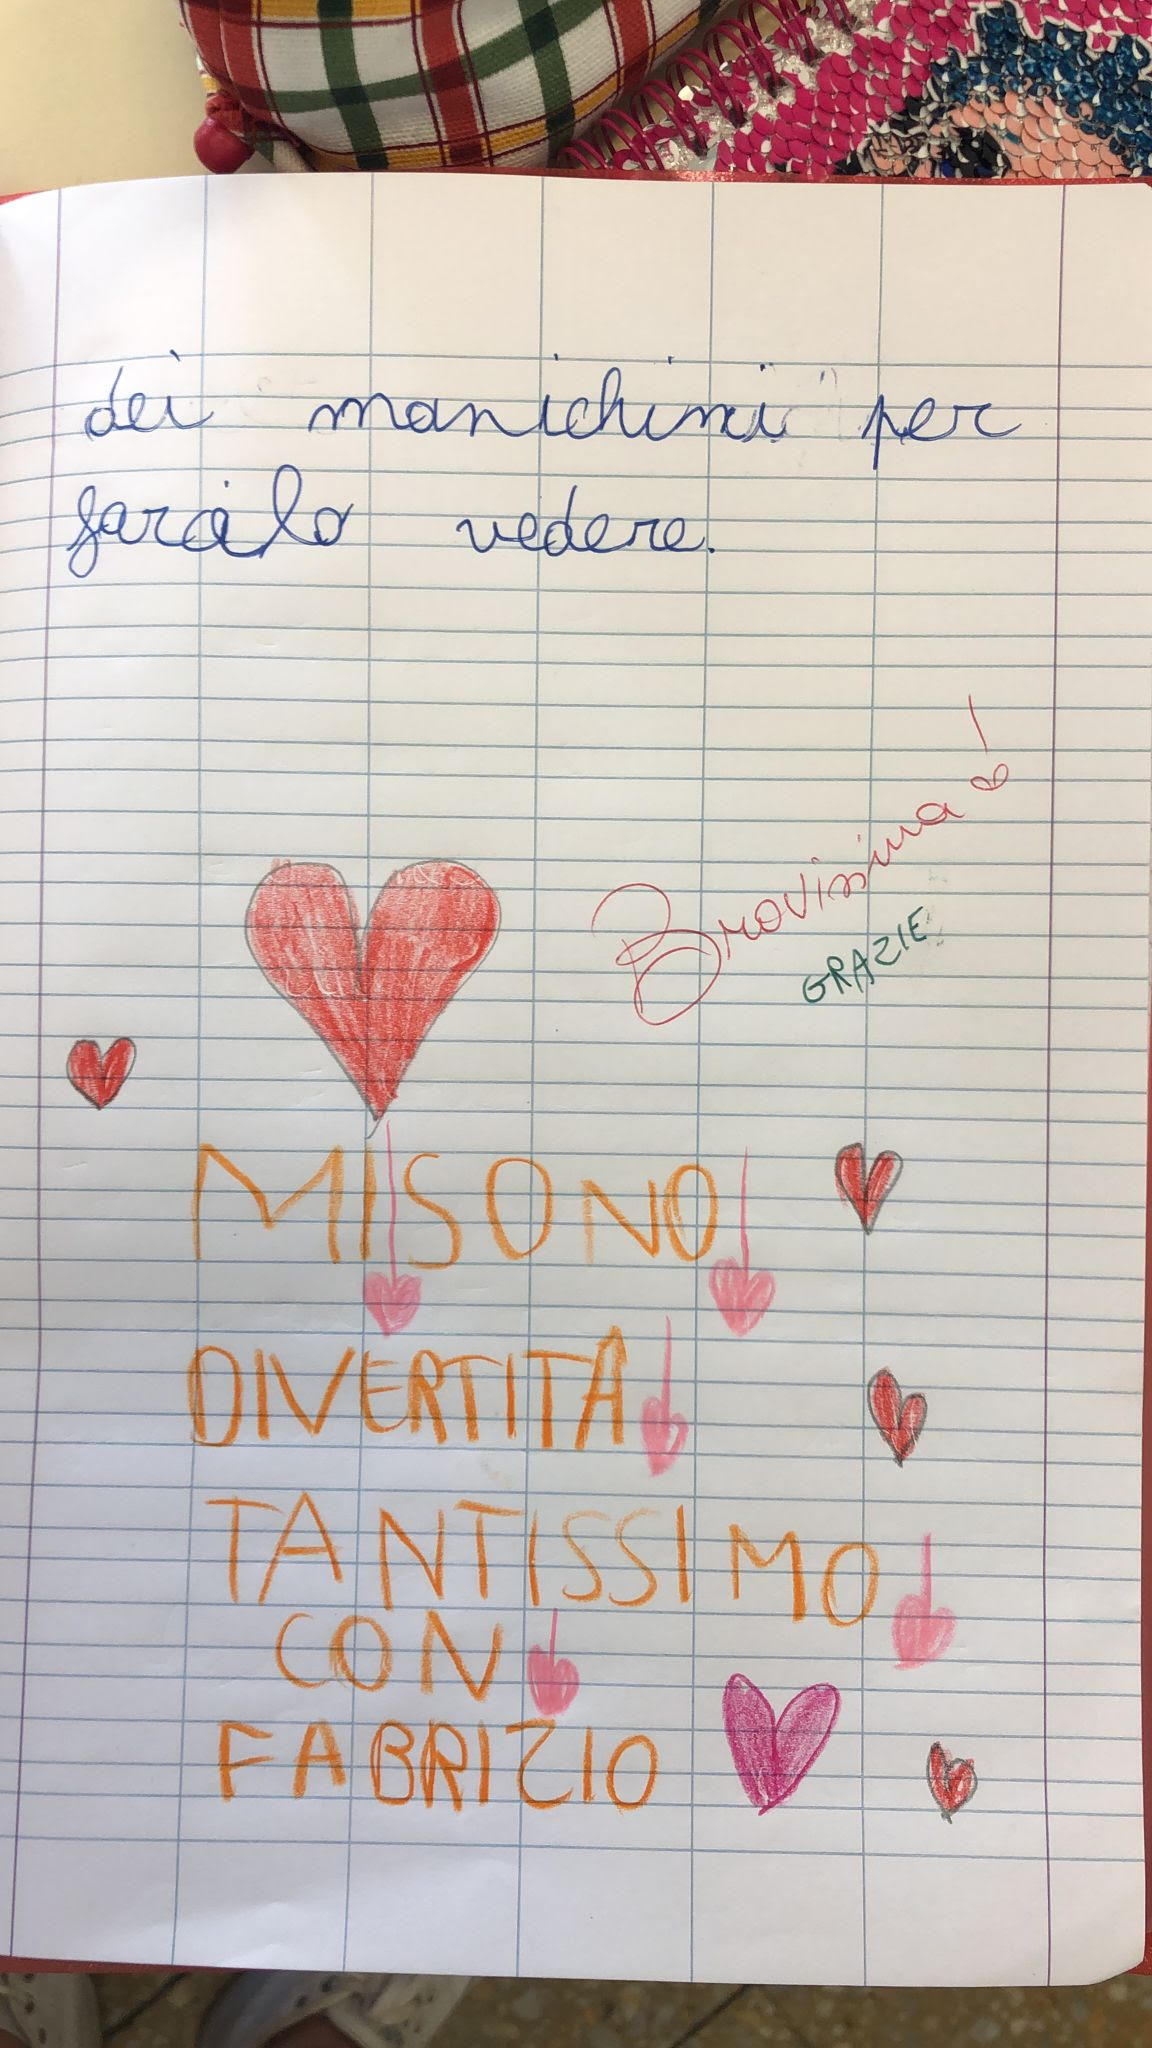 dei manichini per
faralo vedere.
Bravissima!
GRAZIE
MI SONO
DIVERTITA
TANTISSIMO
CON
FABRIZIO